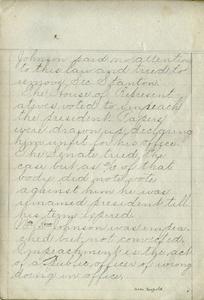 Johnson paid no attention
to this law and tried to
remove Sec Stanton.
The House of Represent
atives voted to impeach
the president. Papers
were drawn up declaring
him unfit for his office.
The Senate tried the
case but as 2/3 of that
body did not vote
against him he was
remained president till
his term expired.
Johnson was impea
ched but not convicted.
Impeachment is the act
of a public officer of wrong
doing in office.